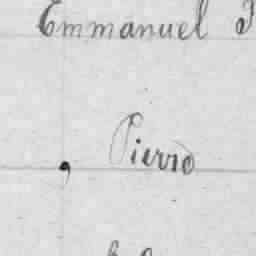 Emmanuel
Pierre